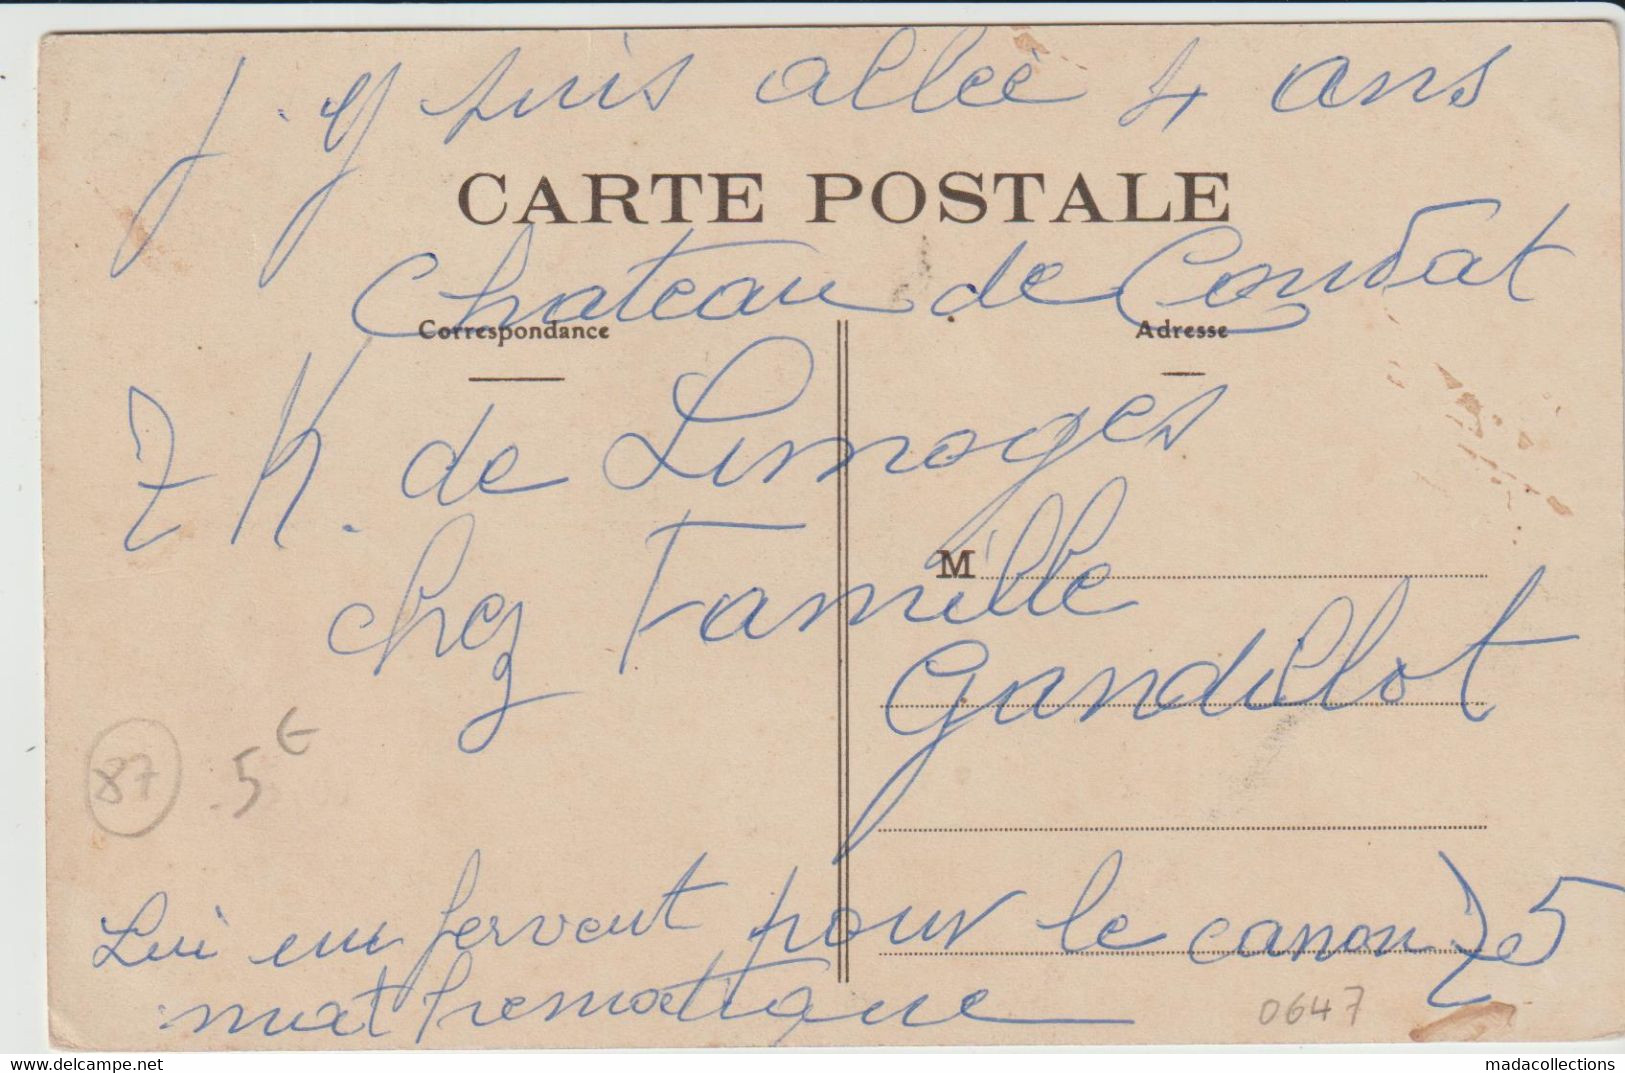 J'y suis allée 4 ans
CARTE POSTALE
Chateau de Condat
Correspondance
Adresse
7 K. de Limoges
chez Famille
M
Gandillot
87
5€
Lui en fervent pour le canon 75
mathematique
0647
madacollections